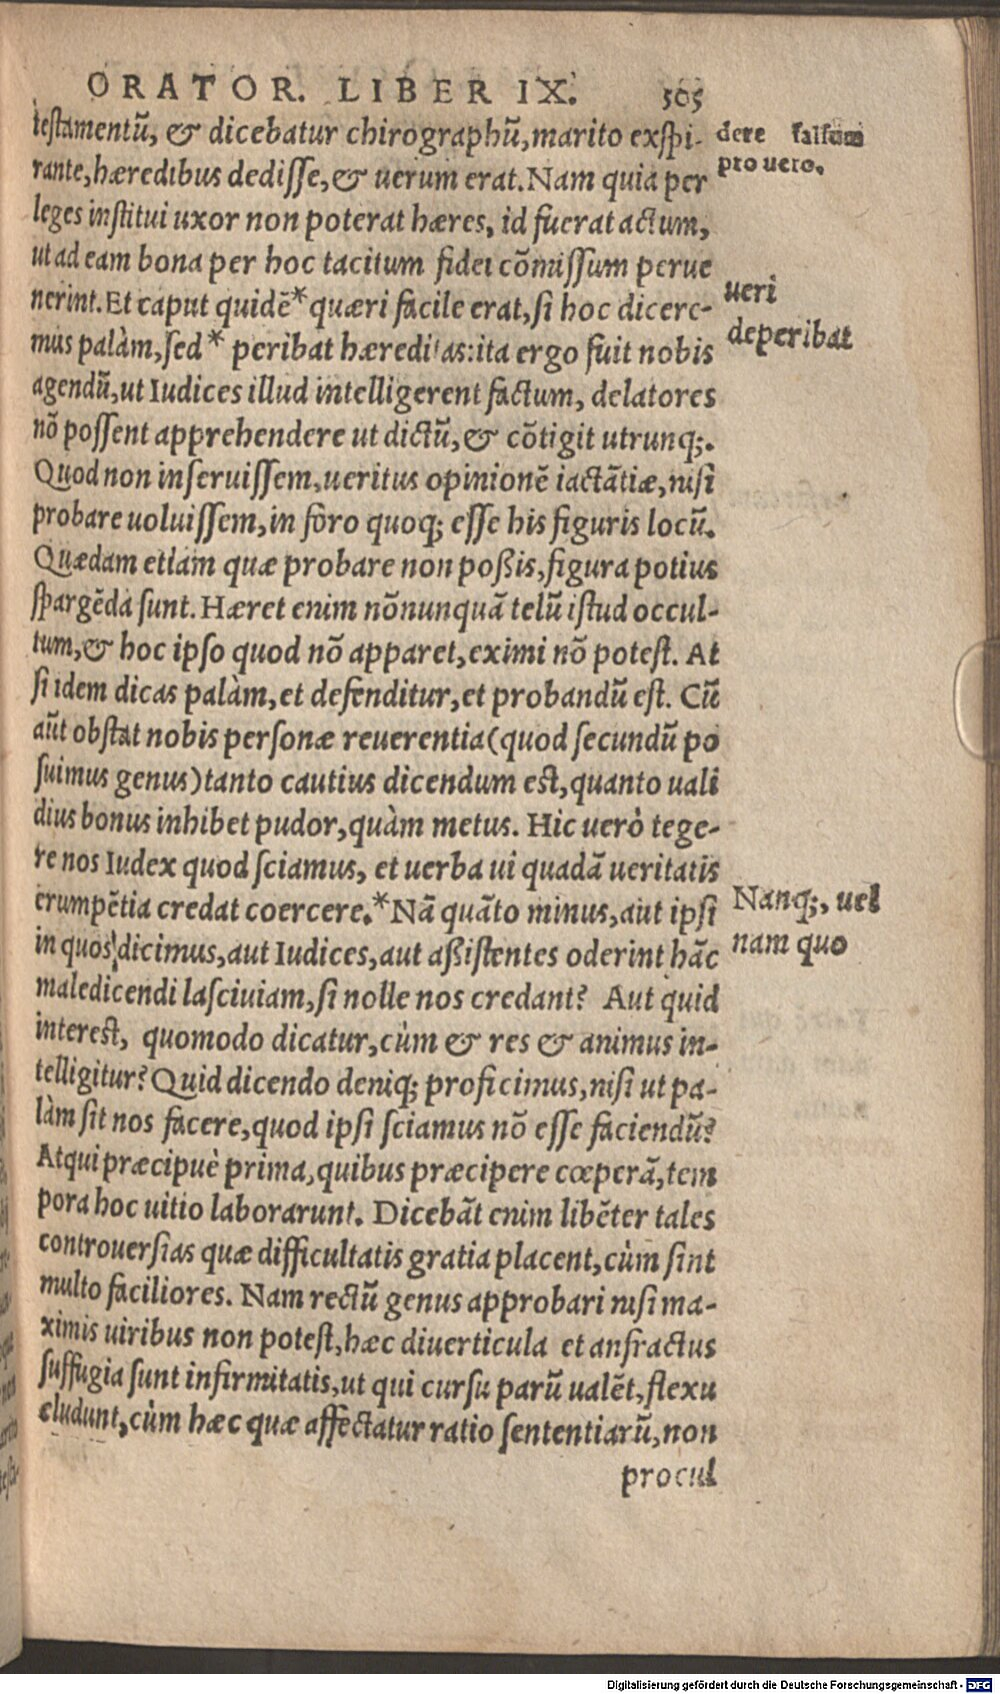 ORATOR. LIBER IX. 505
testamentũ, & dicebatur chirographũ, marito exspi-
rante, hæredibus dedisse, & uerum erat. Nam quia per
leges institui uxor non poterat hæres, id fuerat actum,
ut ad eam bona per hoc tacitum fidei cõmissum perue
nerint. Et caput quidẽ* quæri facile erat, si hoc dicere-
mus palàm, sed* peribat hæreditas: ita ergo fuit nobis
agendũ, ut Iudices illud intelligerent factum, delatores
nõ possent apprehendere ut dictũ, & cõtigit utrunq;.
Quod non inseruissem, ueritus opinionẽ iactãtiæ, nisi
probare uoluissem, in foro quoq; esse his figuris locũ.
Quædam etiam quæ probare non poßis, figura potius
spargẽda sunt. Hæret enim nõnunquã telũ istud occul-
tum, & hoc ipso quod nõ apparet, eximi nõ potest. At
si idem dicas palàm, et defenditur, et probandũ est. Cũ
aũt obstat nobis personæ reuerentia (quod secundũ po
suimus genus) tanto cautius dicendum est, quanto uali
dius bonus inhibet pudor, quàm metus. Hic uerò tege-
re nos Iudex quod sciamus, et uerba ui quadã ueritatis
erumpẽtia credat coercere.* Nã quãto minus, aut ipsi
in quos dicimus, aut Iudices, aut aßistentes oderint hãc
maledicendi lasciuiam, si nolle nos credant? Aut quid
interest, quomodo dicatur, cùm & res & animus in-
telligitur? Quid dicendo deniq; proficimus, nisi ut pa-
làm sit nos facere, quod ipsi sciamus nõ esse faciendũ?
Atqui præcipuè prima, quibus præcipere cœperã, tem
pora hoc uitio laborarunt. Dicebãt enim libẽter tales
controuersias quæ difficultatis gratia placent, cùm sint
multo faciliores. Nam rectũ genus approbari nisi ma-
ximis uiribus non potest, hæc diuerticula et anfractus
suffugia sunt infirmitatis, ut qui cursu parũ ualẽt, flexu
eludunt, cùm hæc quæ affectatur ratio sententiarũ, non
procul
dere falsum
pro uero.
ueri
deperibat
Nanq;, uel
nam quo
Digitalisierung gefördert durch die Deutsche Forschungsgemeinschaft - DFG